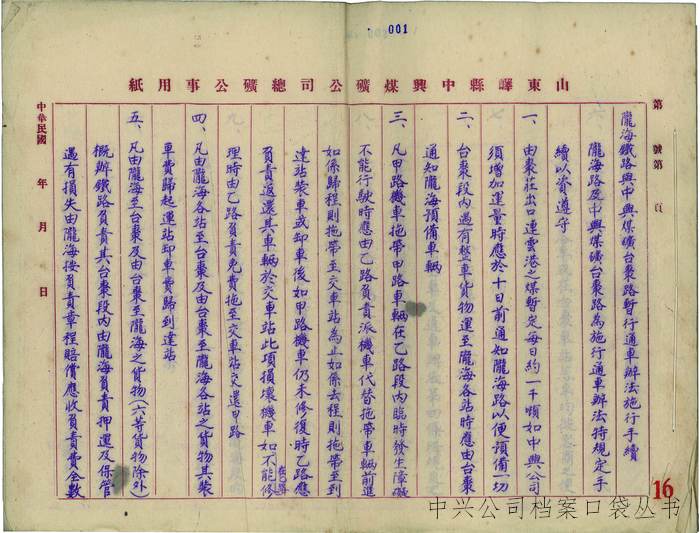 001
山東嶧縣中興煤礦公司總礦公事用紙
第　號第　頁
隴海鐵路與中興煤礦台棗路暫行通車辦法施行手續
隴海路及中興煤礦台棗路為施行通車辦法特規定手
續以資遵守
一、由棗莊出口運雲港之煤暫定每日約一千噸如中興公司
須增加運量時應於十日前通知隴海路以便預備一切
二、台棗段內遇有整車貨物運至隴海各站時應由台棗
通知隴海預備車輛
三、凡甲路機車拖帶甲路車輛在乙路段內臨時發生障礙
不能行駛時應由乙路負責派機車代替拖帶車輛前進
如係歸程則拖帶至交車站為止如係去程則拖帶至到
達站裝車或卸車後如甲路機車仍未修復時乙路應
負責返還其車輛於交車站此項損壞機車如不能修
理時由乙路負責免費拖至交車站交還甲路
四、凡由隴海各站至台棗及由台棗至隴海各站之貨物其裝
車費歸起運站卸車費歸到達站
五、凡由隴海至台棗及由台棗至隴海之貨物(六等貨物除外)
概辦鐵路負責其台棗段內由隴海負責押運及保管
遇有損失由隴海按負責章程賠償應收負責費全數
中華民國　年　月　日
16
中兴公司档案口袋丛书